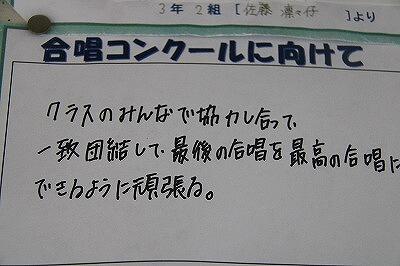 3年 2組 [佐藤 凛々仔 ]より
合唱コンクールに向けて
クラスのみんなで協力し合って、
一致団結して、最後の合唱を最高の合唱に
できるように頑張る。